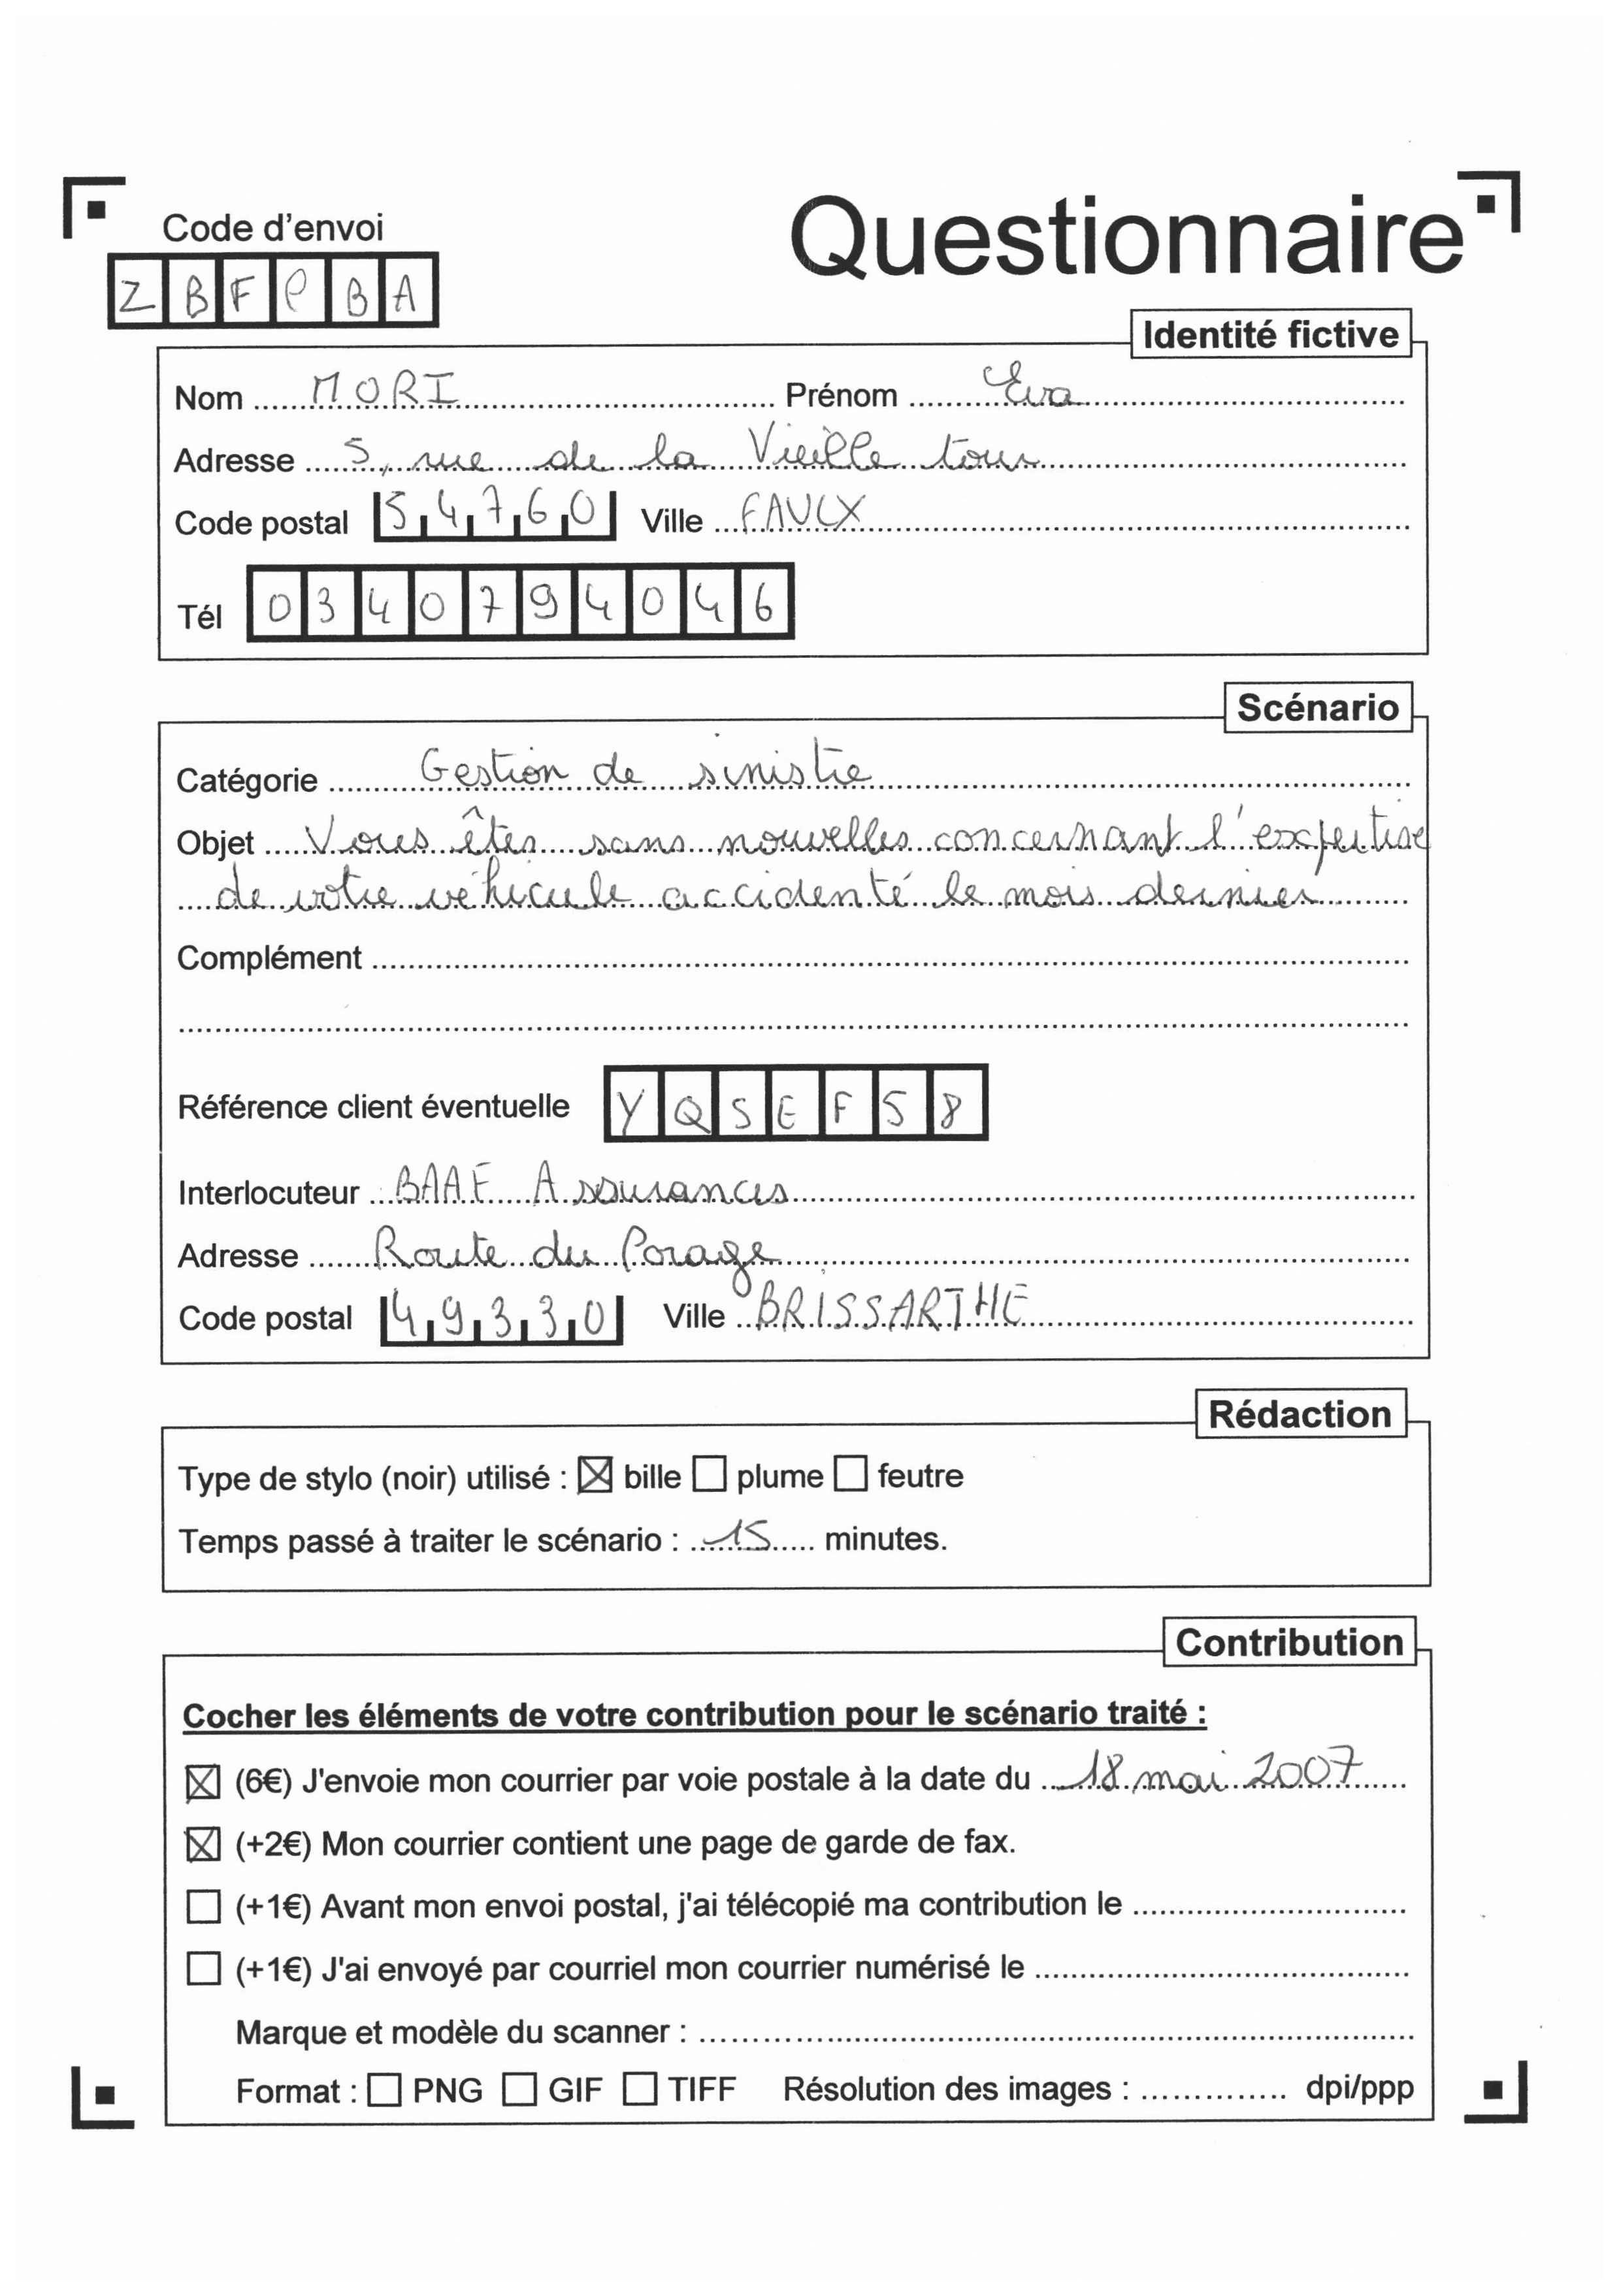 Code d'envoi
Questionnaire
ZBFPBA
Identité fictive
Nom MORI Prénom Eva
Adresse 5, rue de la Vieille tour
Code postal 54760 Ville FAULX
Tél 0340794046
Scénario
Catégorie Gestion de sinistre
Objet Vous êtes sans nouvelles concernant l'expertise
de votre véhicule accidenté le mois dernier
Complément
Référence client éventuelle YQSEF58
Interlocuteur BAAF Assurances
Adresse Route du Porage
Code postal 49330 Ville BRISSARTHE
Rédaction
Type de stylo (noir) utilisé : ☒ bille ☐ plume ☐ feutre
Temps passé à traiter le scénario : 15 minutes.
Contribution
Cocher les éléments de votre contribution pour le scénario traité :
☒ (6€) J'envoie mon courrier par voie postale à la date du 18 mai 2007
☒ (+2€) Mon courrier contient une page de garde de fax.
☐ (+1€) Avant mon envoi postal, j'ai télécopié ma contribution le
☐ (+1€) J'ai envoyé par courriel mon courrier numérisé le
Marque et modèle du scanner :
Format : ☐ PNG ☐ GIF ☐ TIFF Résolution des images : dpi/ppp